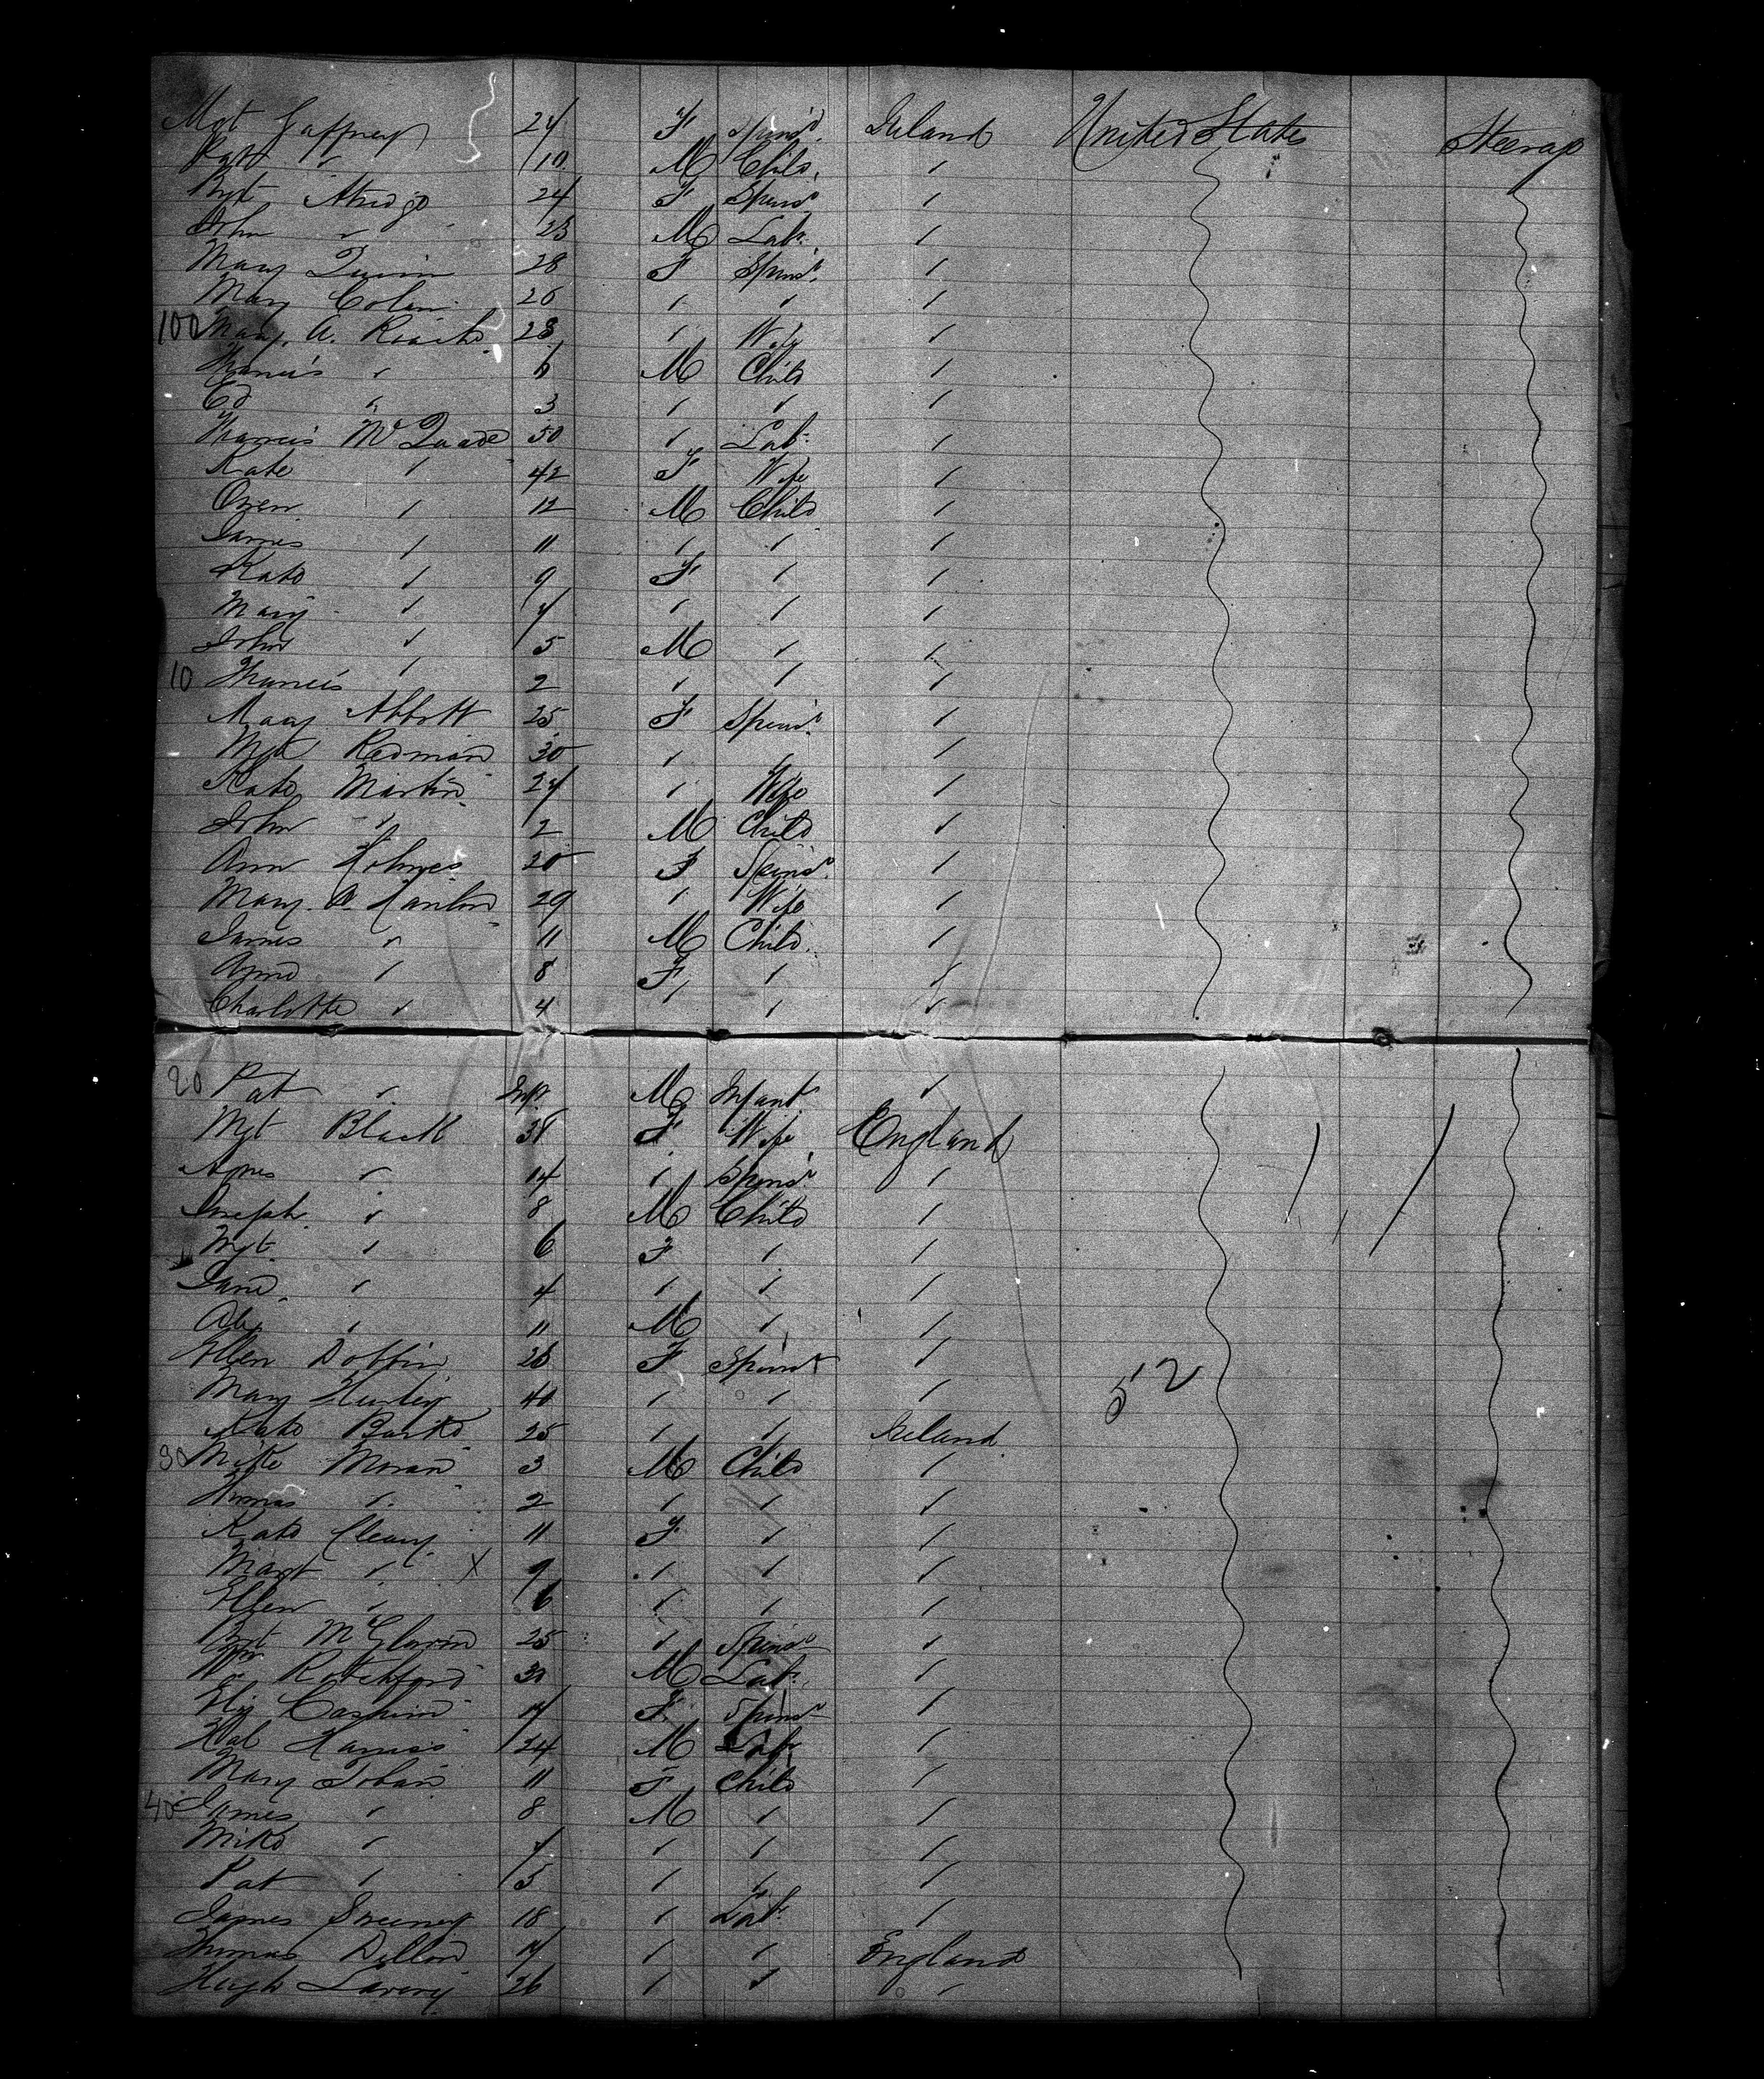 Mgt Gaffney 24 F Spinst Ireland United States Steerage
10 M Child "
24 F Spinst "
John " 23 M Lab. "
Mary Quinn 28 F Spinst "
Mary 26 " " "
100 Mary A. 28 " Wife "
Francis " 6 M Child "
Ed " 3 " " "
Francis McQuade 50 " Lab. "
Kate " 42 F Wife "
Owen " 12 M Child "
James " 11 " " "
Kate " 9 F " "
Mary " 7 " " "
John " 5 M " "
10 Francis " 2 " " "
Mary Abbott 25 F Spinst "
Mgt Redmond 30 " " "
Kate Martin 24 " Wife "
John " 2 M Child "
Ann Holmes 20 F Spinst "
Mary A. Hanlon 29 " Wife "
James " 11 M Child "
" 8 F " "
Charlotte " 4 " " "
20 Pat " Inft M Infant "
Mgt Black 38 F Wife England
Agnes " 14 " Spinst "
Joseph " 8 M Child "
Mgt " 6 F " "
Jane " 4 " " "
Alex " 11 M " "
Ellen Dobbin 26 F Spinst "
52
Mary Hurley 40 " " "
Kate Burke 25 " " Ireland
30 Mike Moran 3 M Child "
Thomas " 2 " " "
Kate Cleary 11 F " "
Margt " X 9 " " "
Ellen " 6 " " "
25 " Spinst "
Wm Rotchford 30 M Lab. "
Eliz 17 F Spinst "
24 M Lab. "
Mary Tobin 11 F Child "
40 James " 8 M " "
Mike " 7 " " "
Pat " 5 " " "
James Sweeney 18 " Lab. "
Thomas Dillon 17 " " England
Hugh Lavery 26 " " "